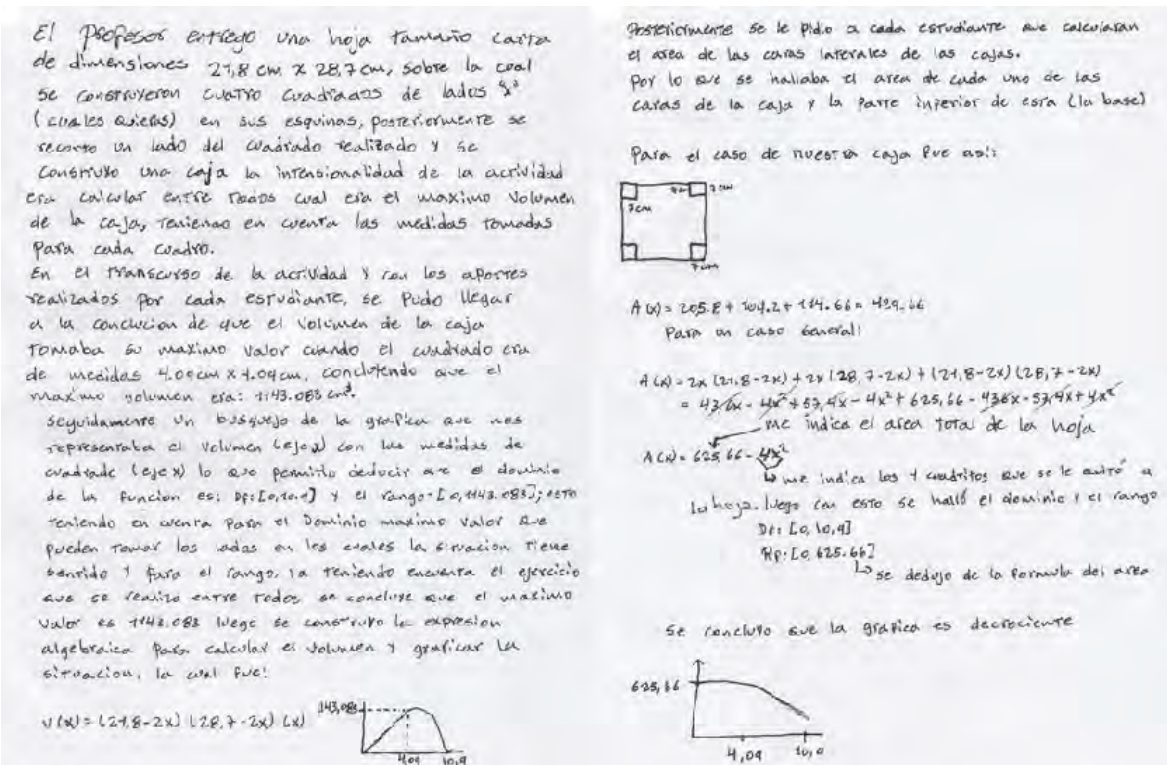 El profesor entrego una hoja tamaño carta
de dimensiones 21,8 cm x 28,7 cm, sobre la cual
se construyeron cuatro cuadrados de lados
(cuales quieras) en sus esquinas, posteriormente se
recorto un lado del cuadrado realizado y se
construyo una caja la intensionalidad de la actividad
era calcular entre todos cual era el maximo volumen
de la caja, teniendo en cuenta las medidas tomadas
para cada cuadro.
En el transcurso de la actividad y con los aportes
realizados por cada estudiante, se pudo llegar
a la conclucion de que el volumen de la caja
tomaba su maximo valor cuando el cuadrado era
de medidas 4.09cm x 4.09cm, concluyendo que el
maximo volumen era: 1143.083 cm³.
seguidamente un busquejo de la grafica que nos
representaba el volumen (eje y) con las medidas de
cuadrado (eje x) lo que permitio deducir que el dominio
de la funcion es: Df:[0,10.9] y el rango:[0,1143.083]; esto
teniendo en cuenta para el Dominio maximo valor que
pueden tomar los lados en los cuales la situacion tiene
sentido y para el rango, ya teniendo encuenta el ejercicio
que se realizo entre todos se concluye que el maximo
valor es 1143.083 luego se construyo la expresion
algebraica para calcular el volumen y graficar la
situacion, la cual fue:
v(x)= (21,8-2x) (28,7-2x) (x)
1143,083
4,09 10,9
Posteriormente se le pidio a cada estudiante que calcularan
el area de las caras laterales de las cajas.
Por lo que se hallaba el area de cada uno de las
caras de la caja y la parte inferior de esta (la base)
Para el caso de nuestra caja fue asi:
7cm 7cm
7cm
7cm
A(x)= 205.8 + 109.2 + 114.66 = 429.66
Para un caso General:
A(x)= 2x (21,8-2x) + 2x (28,7-2x) + (21,8-2x) (28,7-2x)
= 43,6x - 4x² + 57,4x - 4x² + 625,66 - 43,6x - 57,4x + 4x²
me indica el area total de la hoja
A(x)= 625,66 - 4x²
me indica los 4 cuadritos que se le quitó a
la hoja. luego con esto se halló el dominio y el rango
Df: [0, 10,9]
Rf: [0, 625.66]
se dedujo de la formula del area
se concluyo que la grafica es decreciente
625,66
4,09 10,9